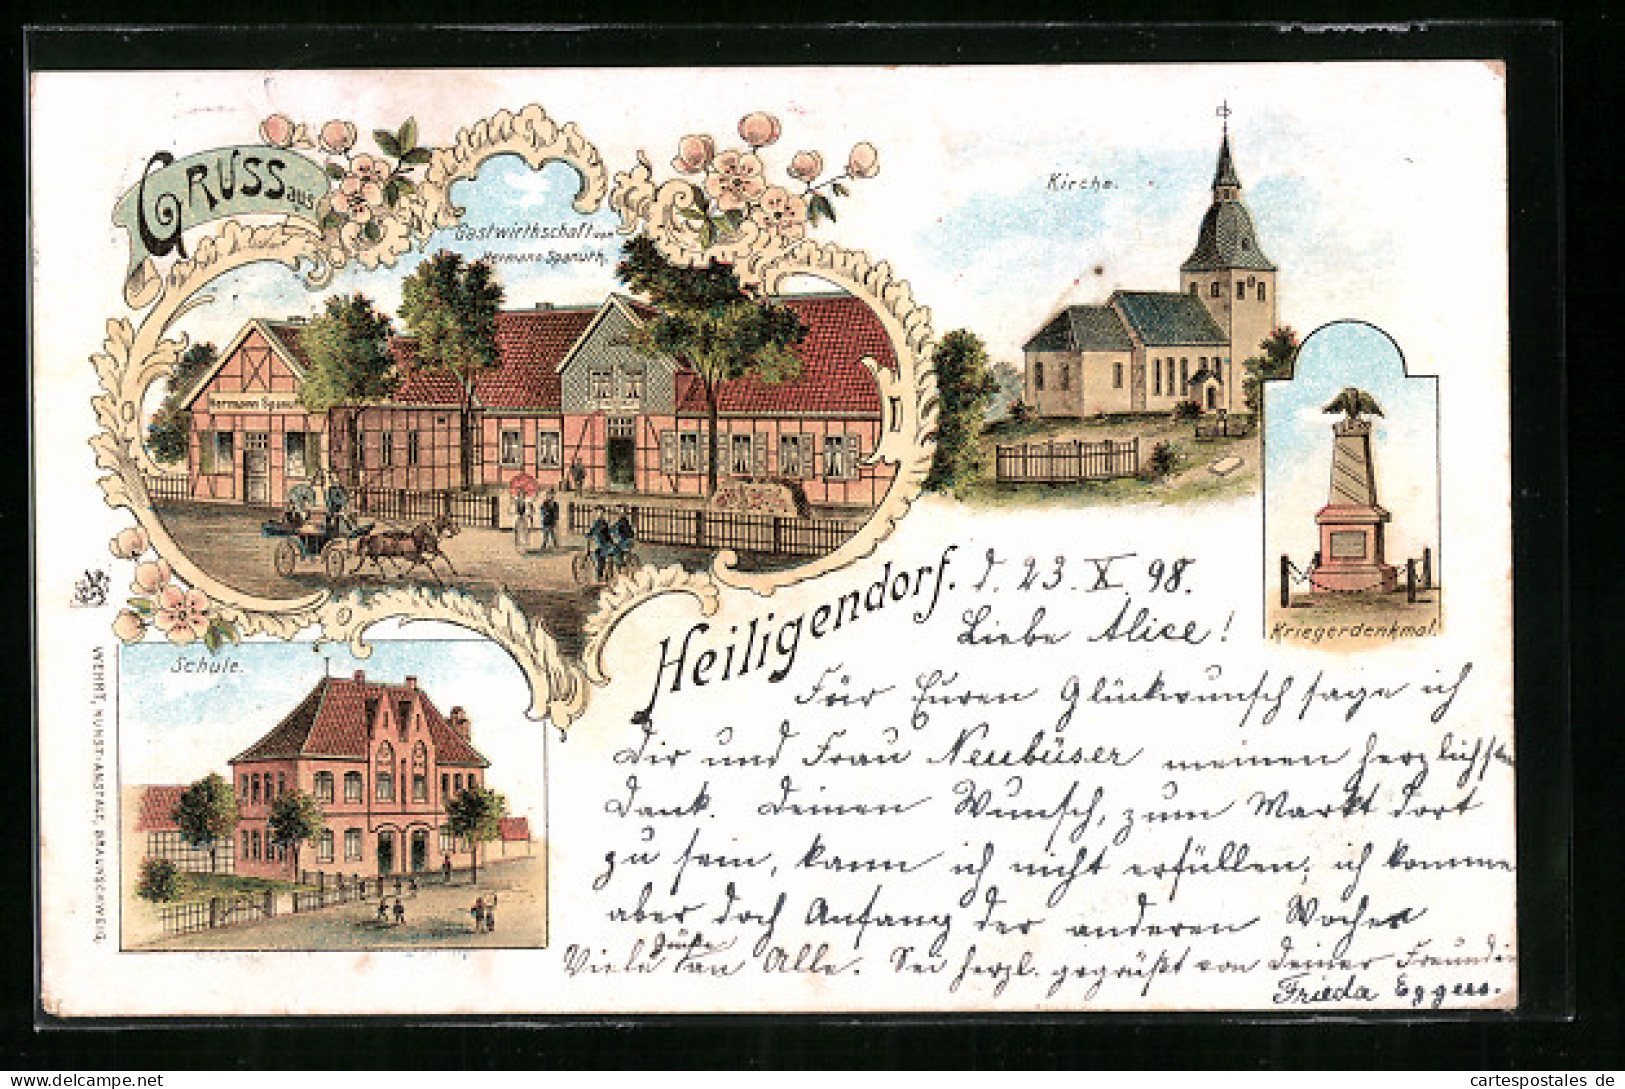 GRUSS aus
Gastwirthschaft von
Hermann Spanuth.
Hermann Spanuth
Kirche.
Kriegerdenkmal.
Schule.
Heiligendorf.
WEHRT, KUNST-ANSTALT, BRAUNSCHWEIG.
d. 23. X. 98.
Liebe Alice!
Für Euren Glückwunsch sage ich
Dir und Frau Neubüser meinen herzlichsten
Dank. Deinen Wunsch, zum Markt dort
zu sein, kann ich nicht erfüllen, ich komme
aber doch Anfang der anderen Woche
Viele Grüße an Alle. Sei herzl. gegrüßt von Deiner Freundin
Frieda Eggers.
cartespostales de